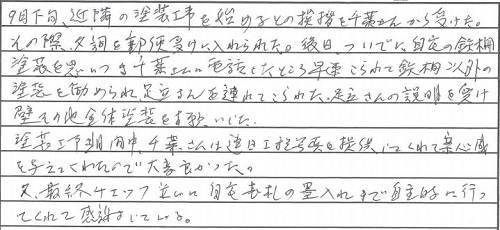 9月下旬、近隣の塗装工事を始めるとの挨拶を千葉さんから受けた。
その際、名詞を郵便受けに入れられた。後日、ついでに自宅の鉄柵
塗装を思いつき千葉さんに電話したところ早速こられて鉄柵以外の
塗装を勧められ足立さんを連れてこられた、足立さんの説明を受け
壁その他全体塗装をお願いした。
塗装工事期間中、千葉さんは連日工事写真を提供してくれて安心感
を与えてくれたので大変良かった。
又、最終チェック並びに自宅表札の墨入れまで自主的に行っ
てくれて感謝している。